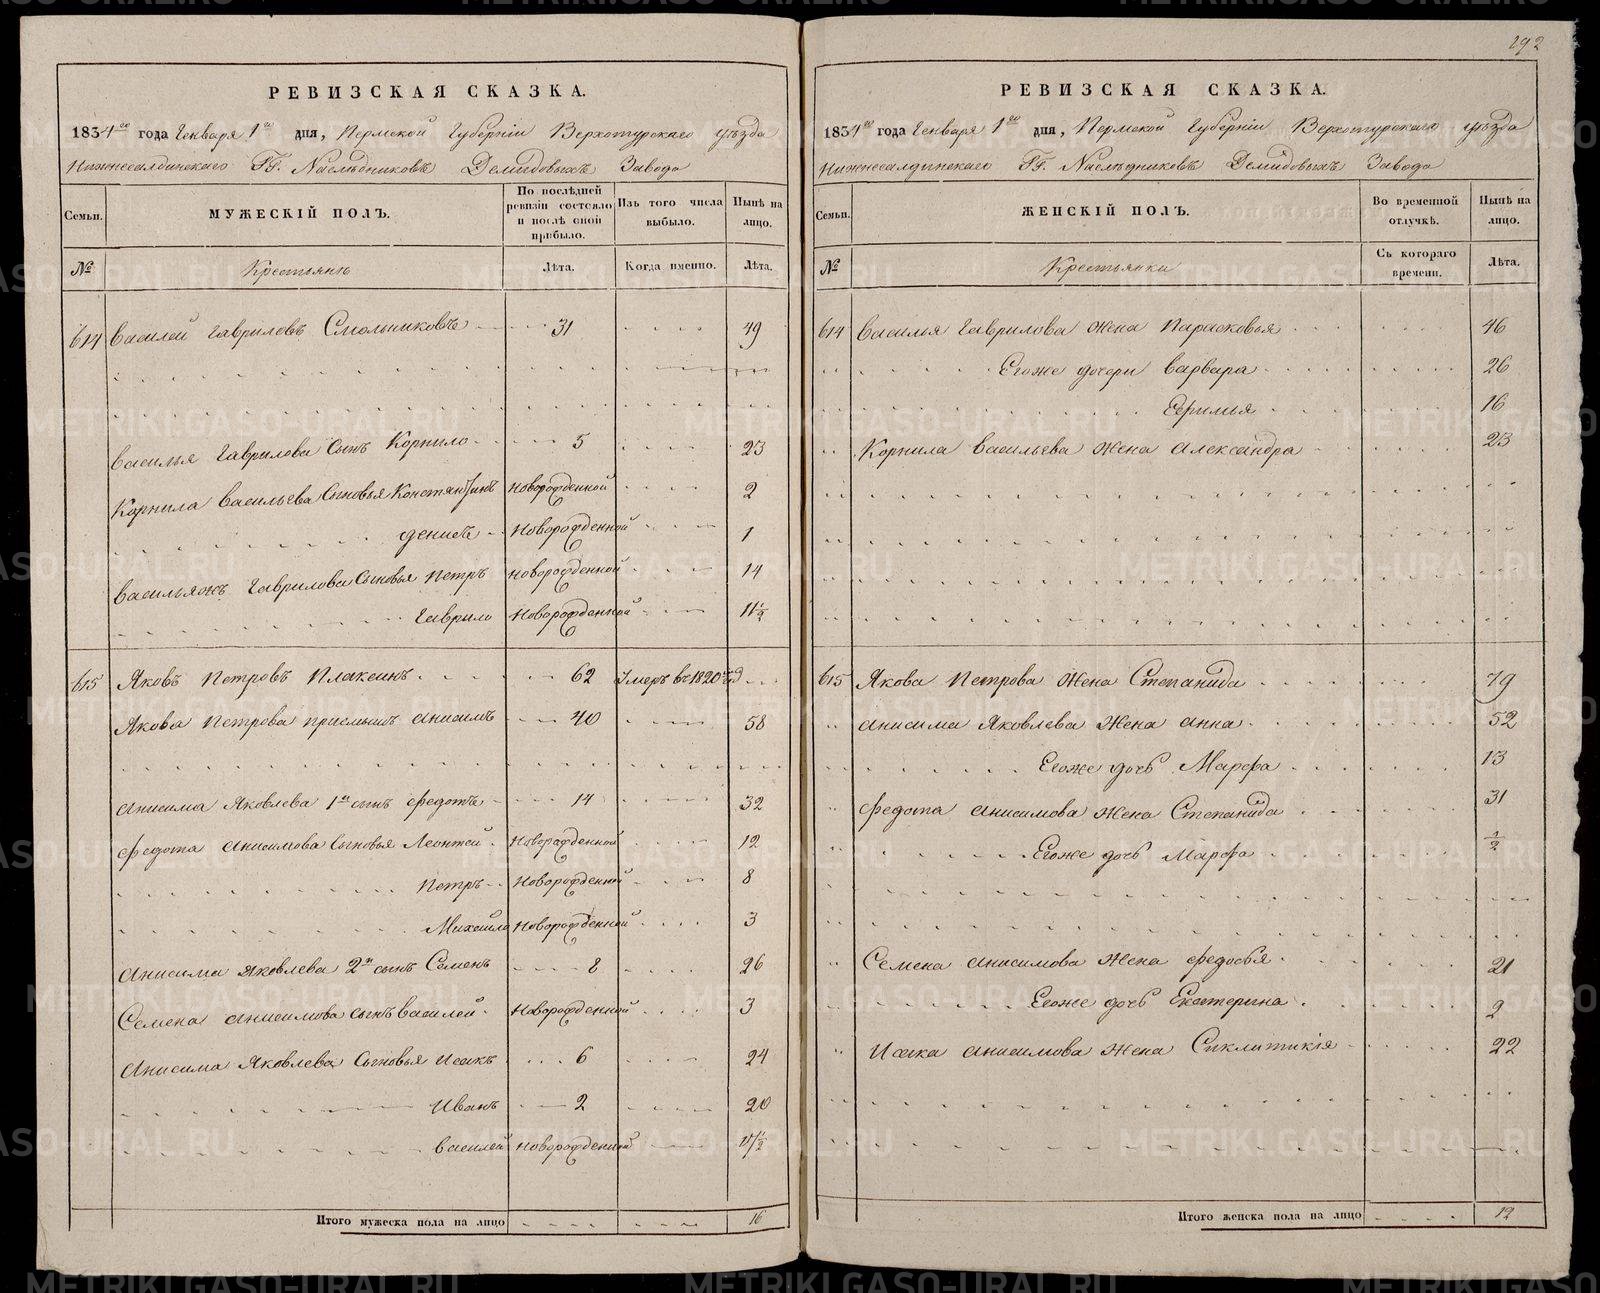 192
РЕВИЗСКАЯ СКАЗКА.
1834го года Генваря 1го дня, Пермской Губернiи Верхотурскаго уѣзда
Нижнесалдинскаго ГГ. Наслѣдниковъ Демидовыхъ Завода
Семьи.
МУЖЕСКIЙ ПОЛЪ.
По послѣдней ревизiи состояло и послѣ оной прибыло.
Изъ того числа выбыло.
Нынѣ на лицо.
№
Крестьянъ
Лѣта.
Когда именно.
Лѣта.
614 Василей Гавриловъ Смольниковъ 31 49
Василья Гаврилова сынъ Корнило 5 23
Корнила Васильева Сыновья Константинъ Новорожденной 2
Денисъ Новорожденной 1
Васильяжъ Гаврилова Сыновья Петръ Новорожденной 14
Гаврило Новорожденной 11½
615 Яковъ Петровъ Плаксинъ 62 Умеръ въ 1820
Якова Петрова приемышъ Анисимъ 40 58
Анисима Яковлева 1й сынъ Федотъ 14 32
Федота Анисимова Сыновья Леонтей Новорожденной 12
Петръ Новорожденной 8
Михайло Новорожденной 3
Анисима Яковлева 2й сынъ Семенъ 8 26
Семена Анисимова сынъ Василей Новорожденной 3
Анисима Яковлева Сыновья Исакъ 6 24
Иванъ 2 20
Василей Новорожденной
Итого мужеска пола на лицо 16
РЕВИЗСКАЯ СКАЗКА.
1834го года Генваря 1го дня, Пермской Губернiи Верхотурскаго уѣзда
Нижнесалдинскаго ГГ. Наслѣдниковъ Демидовыхъ Завода
Семьи.
ЖЕНСКIЙ ПОЛЪ.
Во временной отлучкѣ.
Нынѣ на лицо.
№
Крестьянки
Съ котораго времени.
Лѣта.
614 Василья Гаврилова жена Парасковья 46
Егоже дочери Варвара 26
16
Корнила Васильева жена Александра 23
615 Якова Петрова жена Степанида 79
Анисима Яковлева жена Анна 52
Егоже дочь Марфа 13
Федота Анисимова жена Степанида 31
Егоже дочь Марфа ½
Семена Анисимова жена Федосья 21
Егоже дочь Екатерина 2
Исака Анисимова жена Сиклитикiя 22
Итого женска пола на лицо 12
METRIKI.GASO-URAL.RU